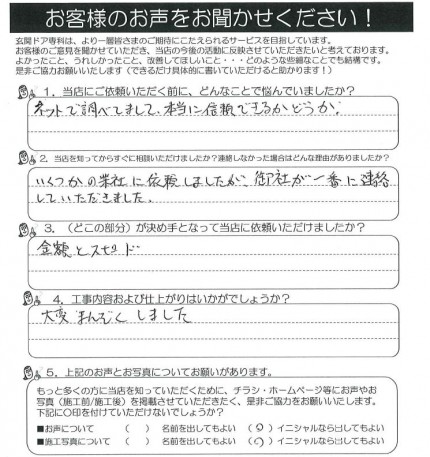 お客様のお声をお聞かせください！
玄関ドア専科は、より一層皆さまのご期待にこたえられるサービスを目指しています。
お客様のご意見を聞かせていただき、当店の今後の活動に反映させていただきたいと考えております。
よかったこと、うれしかったこと、改善してほしいこと・・・どのような些細なことでも結構です。
是非ご協力お願いいたします（できるだけ具体的に書いていただけると助かります！）
1．当店にご依頼いただく前に、どんなことで悩んでいましたか？
ネットで調べてまして、本当に信頼できるかどうか？
2．当店を知ってからすぐに相談いただけましたか？連絡しなかった場合はどんな理由がありましたか？
いくつかの業社に依頼しましたが、御社が一番に連絡
していただきました。
3．（どこの部分）が決め手となって当店に依頼いただけましたか？
金額とスピード
4．工事内容および仕上がりはいかがでしょうか？
大変まんぞくしました
5．上記のお声とお写真についてお願いがあります。
もっと多くの方に当店を知っていただくために、チラシ・ホームページ等にお声やお
写真（施工前/施工後）を掲載させていただきたく、是非ご協力をお願いいたします。
下記に〇印を付けていただけないでしょうか？
■お声について （ ） 名前を出してもよい （〇）イニシャルなら出してもよい
■施工写真について （ ） 名前を出してもよい （〇）イニシャルなら出してもよい